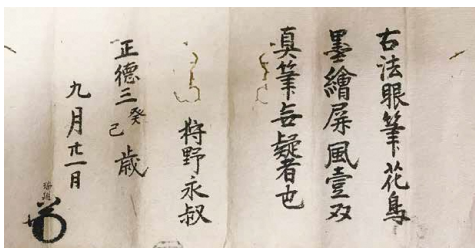 右法眼筆花鳥
墨繪屏風壹双
真筆無疑者也
狩野永叔
正徳三癸巳歳
九月廿一日